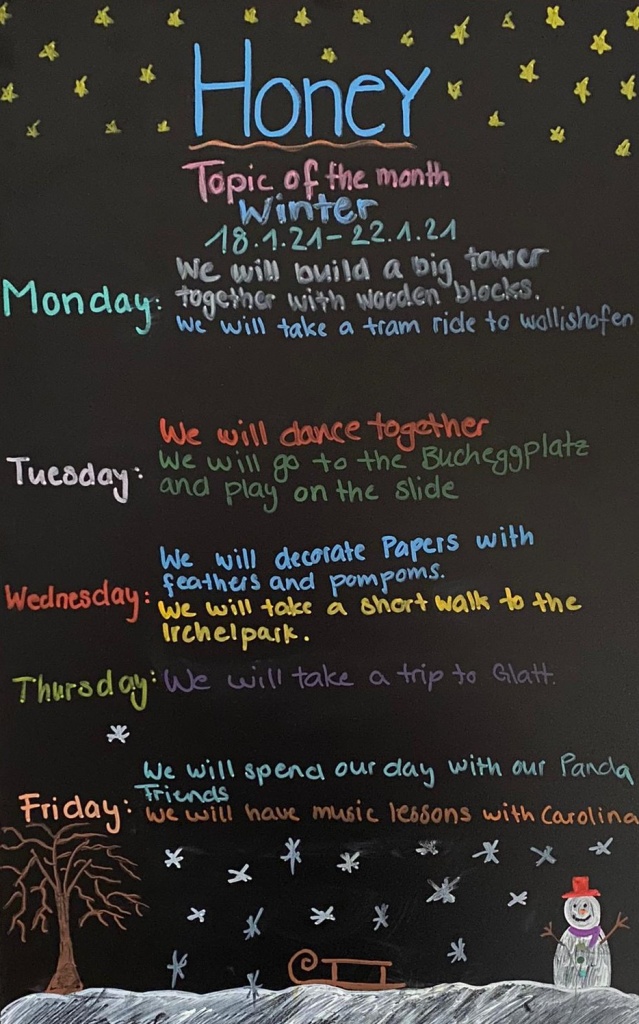 Honey
Topic of the month
Winter
18.1.21-22.1.21
Monday:
We will build a big tower
together with wooden blocks.
We will take a tram ride to wollishofen
Tuesday:
We will dance together
We will go to the Bucheggplatz
and play on the slide
Wednesday:
We will decorate Papers with
feathers and pompoms.
We will take a short walk to the
Irchelpark.
Thursday:
We will take a trip to Glatt.
Friday:
We will spend our day with our Panda
Friends
We will have music lessons with Carolina